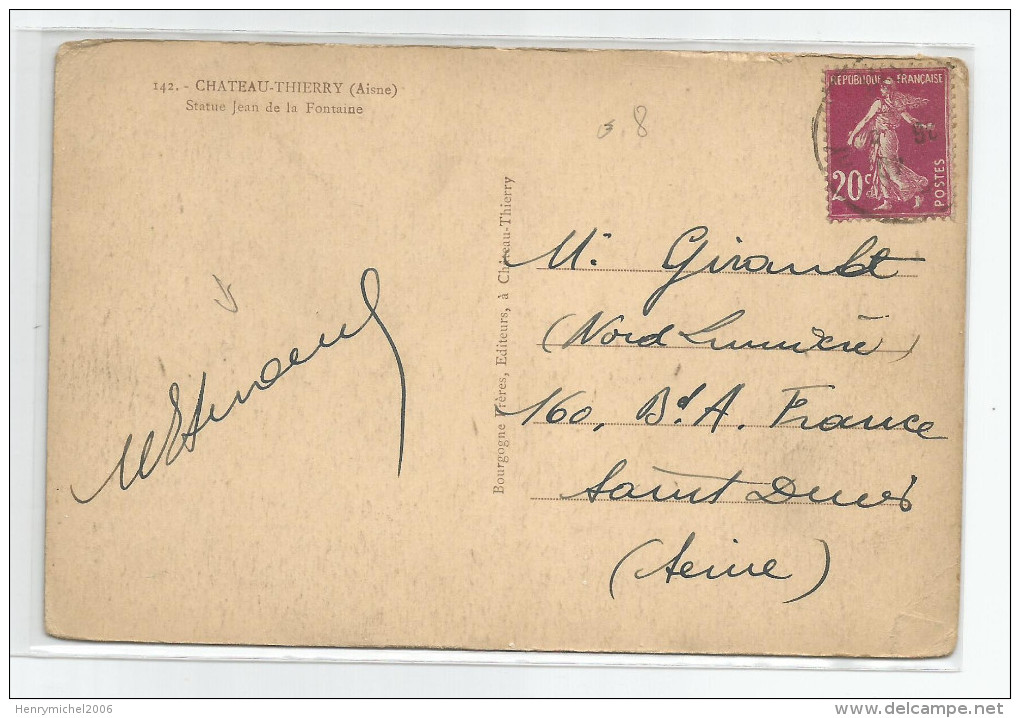 142. - CHATEAU-THIERRY (Aisne)
Statue Jean de la Fontaine
8
RÉPUBLIQUE FRANÇAISE
20c
POSTES
Bourgogne Frères, Editeurs, à Château-Thierry
M. Girault
(Nord Lumière)
160, Bd A. France
Saint Denis
(Seine)
Henrymichel2006
www.delcampe.net